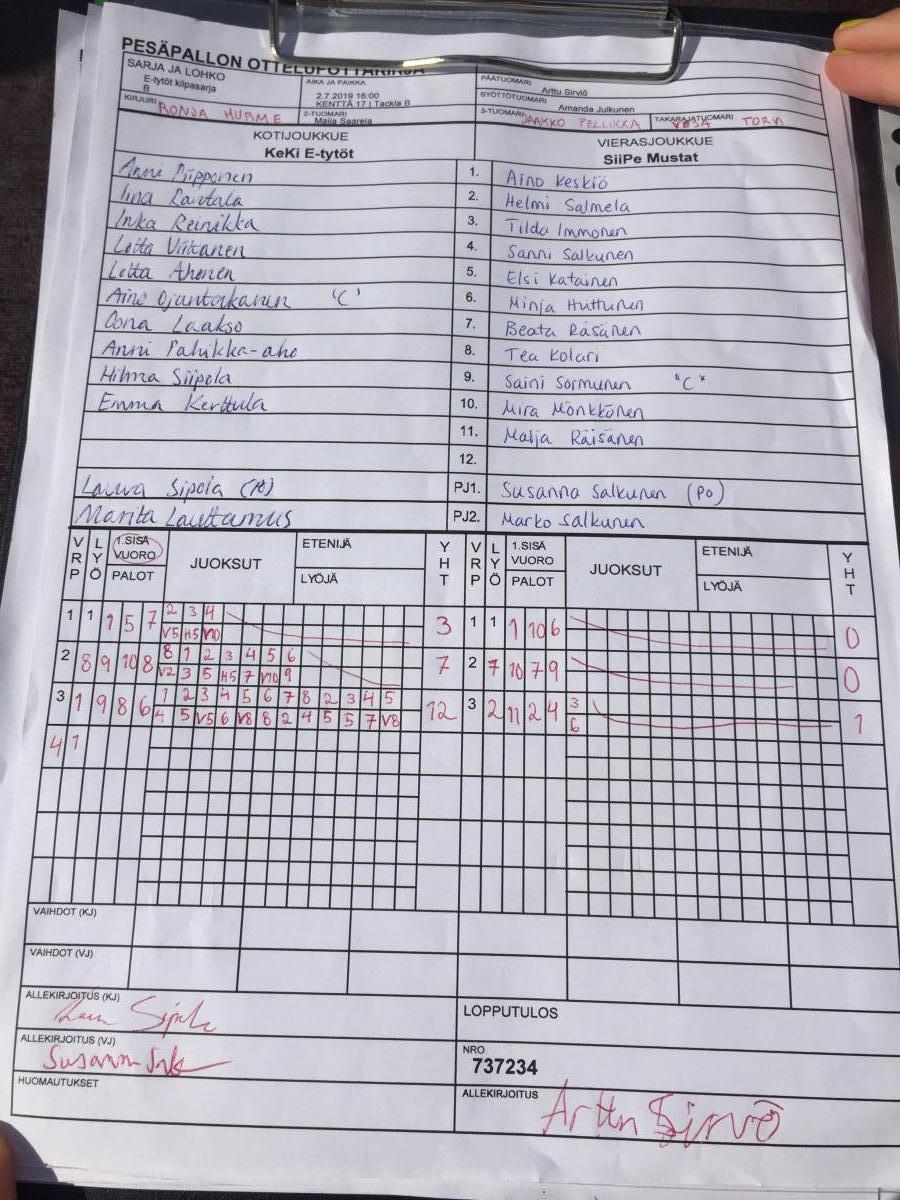 PESÄPALLON OTTELUPÖYTÄKIRJA
SARJA JA LOHKO
E-tytöt kilpasarja
B
AIKA JA PAIKKA
2.7.2019 16:00
KENTTÄ 17 | Tackla B
PÄÄTUOMARI
Arttu Sirviö
SYÖTTÖTUOMARI
Amanda Julkunen
KIRJURI RONJA HURME
2-TUOMARI
Maija Saarela
3-TUOMARI JAAKKO PELLIKKA
TAKARAJATUOMARI VESA TORVI
KOTIJOUKKUE
KeKi E-tytöt
VIERASJOUKKUE
SiiPe Mustat
Anni Piipponen 1. Aino Keskiö
Iina Rautala 2. Helmi Salmela
Inka Reinikka 3. Tilda Immonen
Lotta Viitanen 4. Sanni Salkunen
Lotta Ahonen 5. Elsi Katainen
Aino Ojantakanen 'C' 6. Minja Huttunen
Oona Laakso 7. Beata Räsänen
Anni Pahikka-aho 8. Tea Kolari
Hilma Siipola 9. Saini Sormunen "C"
Emma Kerttula 10. Mira Mönkkönen
11. Maija Räisänen
12.
Laura Sipola PJ1. Susanna Salkunen (PO)
Marita Lauttamus PJ2. Marko Salkunen
VRP LYÖ 1.SISÄ VUORO PALOT JUOKSUT ETENIJÄ LYÖJÄ YHT VRP LYÖ 1.SISÄ VUORO PALOT JUOKSUT ETENIJÄ LYÖJÄ YHT
1 1 1 5 7 2 3 4 3 1 1 1 10 6 0
V5 H5 V10
2 8 9 10 8 8 1 2 3 4 5 6 7 2 7 10 7 9 0
V2 3 5 H5 7 V10 9
3 1 9 8 6 1 2 3 4 5 6 7 8 2 3 4 5 12 3 2 11 2 4 3 1
4 5 V5 6 V8 8 2 4 5 5 7 V8 6
4 1
VAIHDOT (KJ)
VAIHDOT (VJ)
ALLEKIRJOITUS (KJ)
LOPPUTULOS
ALLEKIRJOITUS (VJ)
NRO
737234
HUOMAUTUKSET
ALLEKIRJOITUS Arttu Sirviö